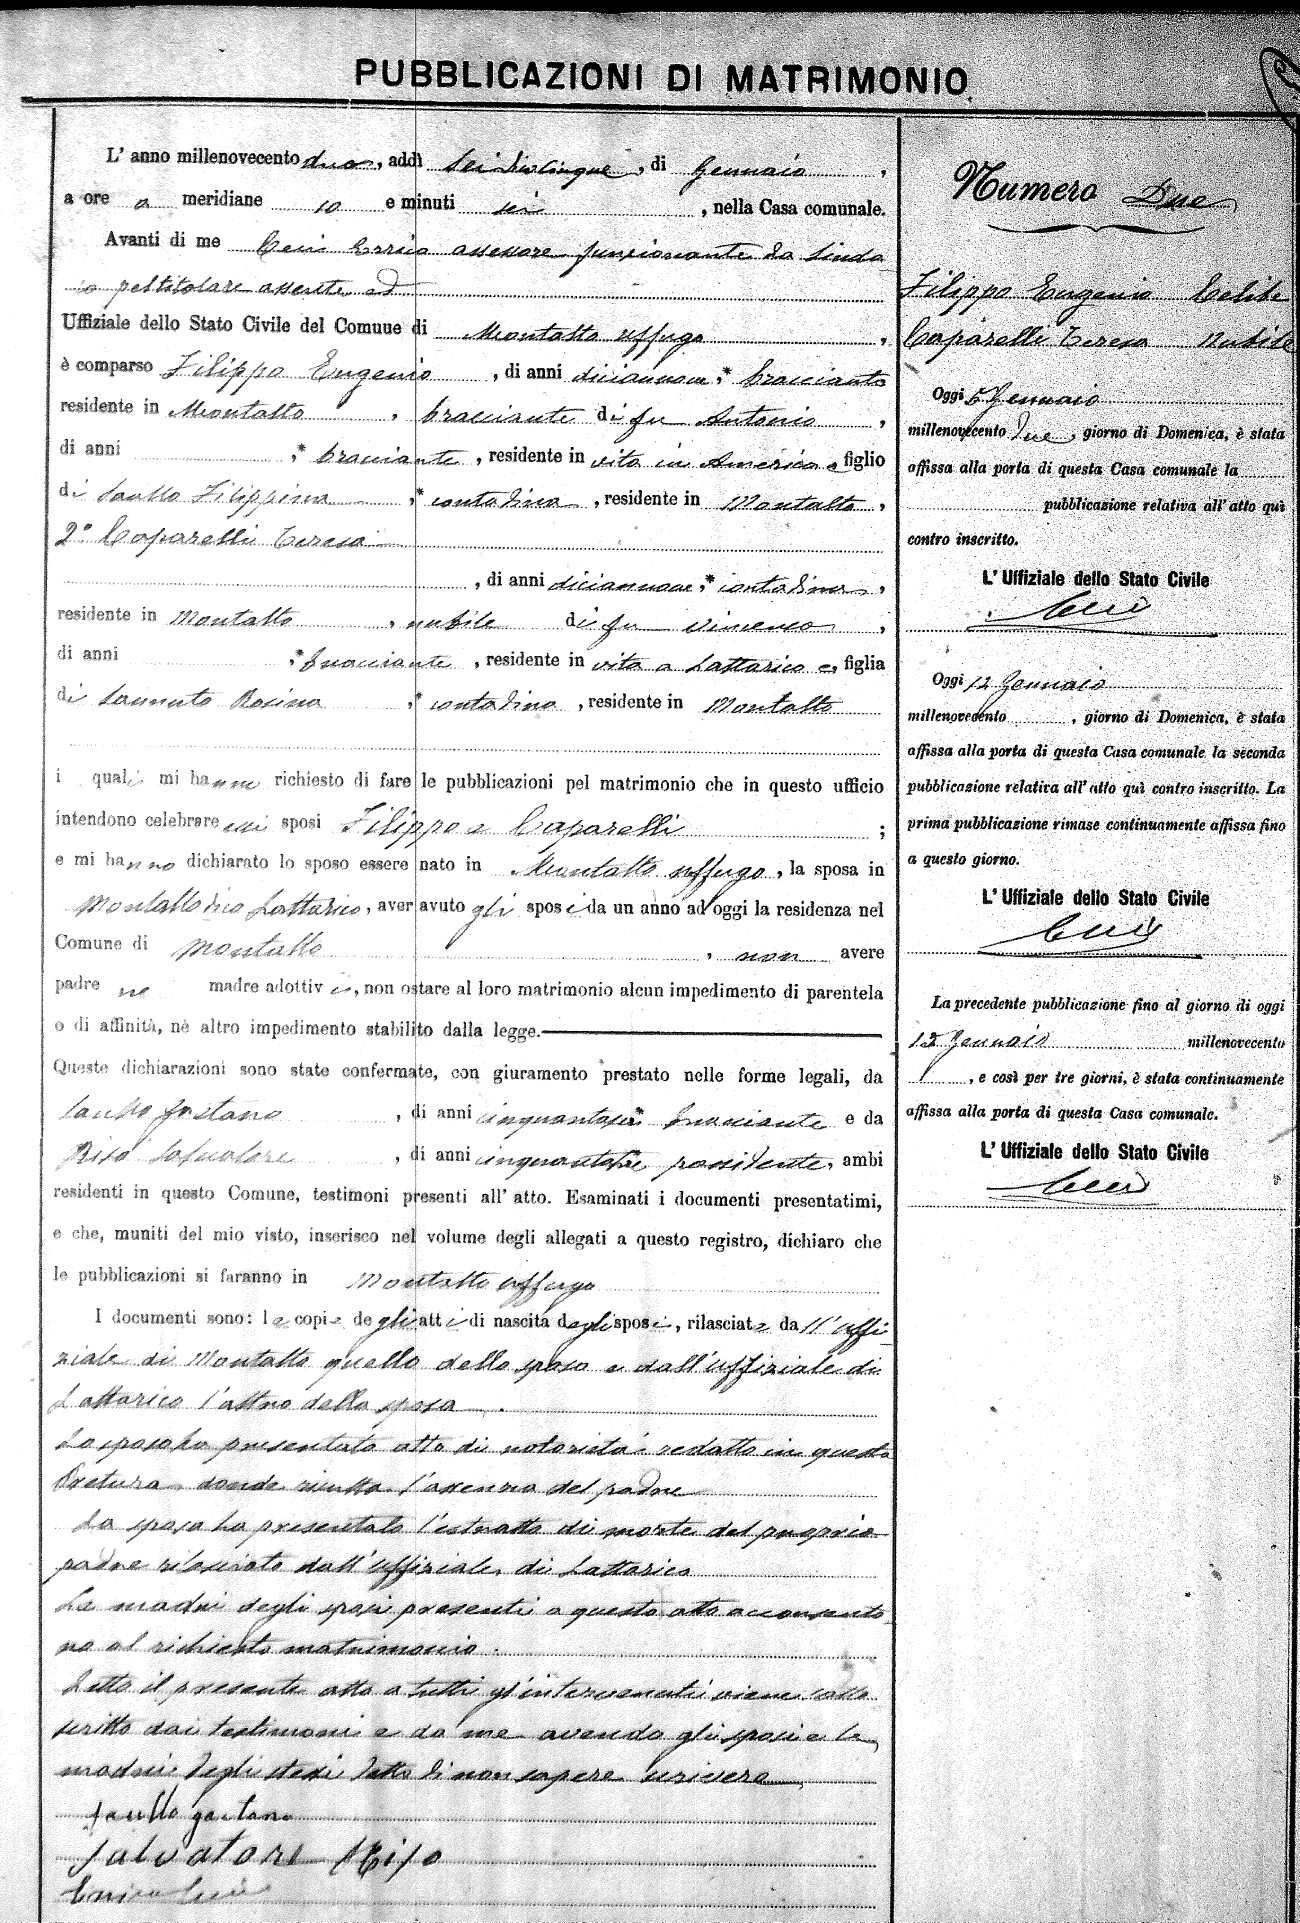 PUBBLICAZIONI DI MATRIMONIO
L' anno millenovecento due, addì di Gennaio,
a ore a meridiane 10 e minuti sei, nella Casa comunale.
Avanti di me assessore funzionante da Sinda
co pel titolare assente ed
Uffiziale dello Stato Civile del Comune di Montalto Uffugo,
è comparso Filippo Eugenio, di anni diciannove,* bracciante
residente in Montalto, bracciante di fu Antonio,
di anni ,* bracciante, residente in vita in America e figlio
di Saullo Filippina ,* contadina, residente in Montalto,
2° Caparelli Teresa
, di anni diciannove,* contadina,
residente in Montalto, nubile di fu Vincenzo,
di anni ,* bracciante, residente in vita a Lattarico e, figlia
di Rosina ,* contadina, residente in Montalto
i quali mi hanno richiesto di fare le pubblicazioni pel matrimonio che in questo ufficio
intendono celebrare essi sposi Filippo e Caparelli ;
e mi hanno dichiarato lo sposo essere nato in Montalto Uffugo, la sposa in
Lattarico, aver avuto gli sposi da un anno ad oggi la residenza nel
Comune di Montalto, non avere
padre ne madre adottivi, non ostare al loro matrimonio alcun impedimento di parentela
o di affinità, nè altro impedimento stabilito dalla legge.
Queste dichiarazioni sono state confermate, con giuramento prestato nelle forme legali, da
Saullo Gaetano, di anni bracciante e da
Riso Salvatore, di anni possidente, ambi
residenti in questo Comune, testimoni presenti all' atto. Esaminati i documenti presentatimi,
e che, muniti del mio visto, inserisco nel volume degli allegati a questo registro, dichiaro che
le pubblicazioni si faranno in Montalto Uffugo
I documenti sono: le copie degli atti di nascita degli sposi, rilasciate dall'uffi
ziale di Montalto quello dello sposo e dall'uffiziale di
Lattarico l'altro della sposa.
Lo sposo ha presentato atto di notorietà redatto in questa
Pretura donde risulta l'assenza del padre
La sposa ha presentato l'estratto di morte del proprio
padre rilasciato dall'uffiziale di Lattarico
Le madri degli sposi presenti a questo atto acconsento
no al richiesto matrimonio.
Letto il presente atto a tutti gl'intervenuti viene sotto
scritto dai testimoni e da me avendo gli sposi e le
madri degli stessi detto di non sapere scrivere
Saullo gaetano
Salvatore Riso
Numero Due
Filippo Eugenio Celibe
Caparelli Teresa Nubile
Oggi 5 Gennaio
millenovecento due, giorno di Domenica, è stata
affissa alla porta di questa Casa comunale la
pubblicazione relativa all' atto quì
contro inscritto.
L' Uffiziale dello Stato Civile
Oggi 12 Gennaio
millenovecento , giorno di Domenica, è stata
affissa alla porta di questa Casa comunale la seconda
pubblicazione relativa all' atto quì contro inscritto. La
prima pubblicazione rimase continuamente affissa fino
a questo giorno.
L' Uffiziale dello Stato Civile
La precedente pubblicazione fino al giorno di oggi
Gennaio millenovecento
, e così per tre giorni, è stata continuamente
affissa alla porta di questa Casa comunale.
L' Uffiziale dello Stato Civile